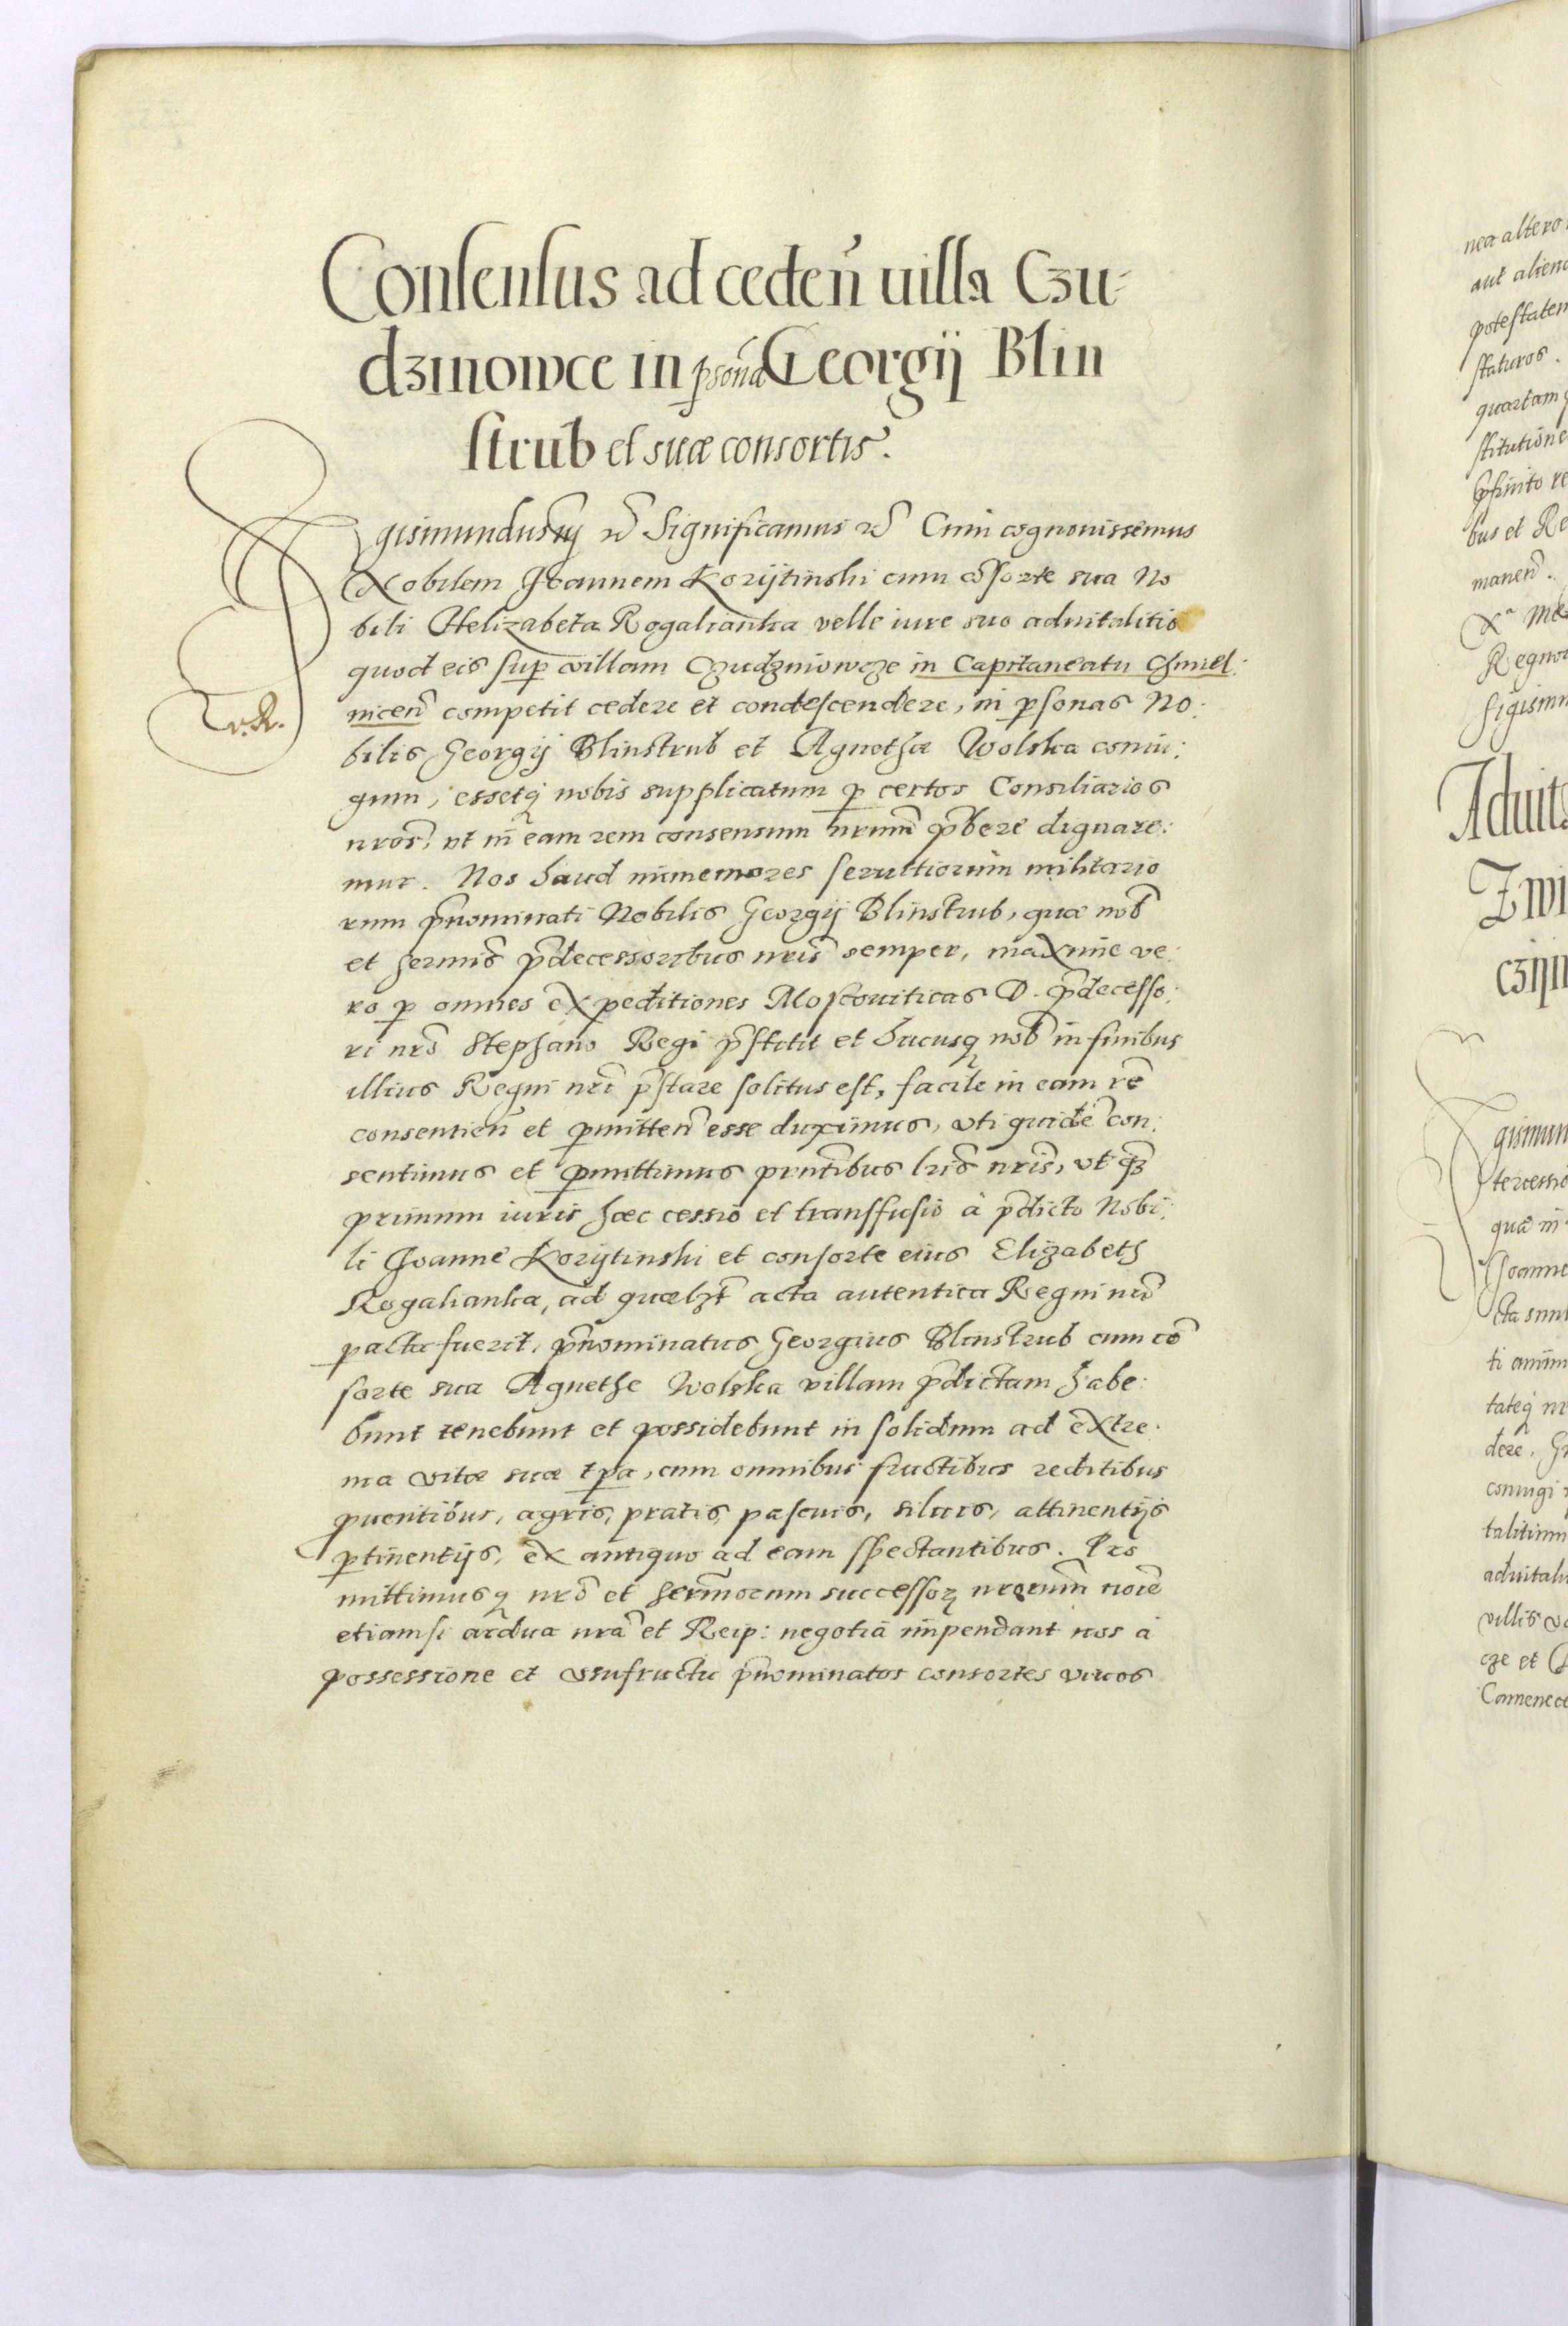 Consensus ad ceden̄ uilla Czu-
dzinowce in psonā Georgij Blin
strub et suæ consortis.
Sigismundus iij etc Significamus etc Cum cognouissemus
Nobilem Joannem Korijtinski cum cōsorte sua No
bili Helizabeta Rogalianka velle iure suo aduitalitio
quod eis sup villam Czudzniowcze in Capitaneatu Chmiel:
nicen̄ competit cedere et condescendere, in psonas No:
bilis Georgij Blinstrub et Agnethæ Wolska coniu:
gum, essetq nobis supplicatum p certos Consiliarios
nrōs, vt in eam rem consensum nrum̄ p̄bere dignare:
mur. Nos haud immemores seruitiorum militario
rum p̄nominati Nobilis Georgij Blinstrub, quæ nob̄
et sermis̄ p̄decessoribus nris̄ semper, maxime ve:
ro p omnes expeditiones Moscouiticas D. p̄decesso:
ri nrō Stephano Regi p̄stitit et hucusq nob̄ in finibus
illius Regni nrī p̄stare solitus est, facile in eam rē
consentien̄ et pmitten̄ esse duximus, vti quidē con:
sentimus et pmittimus pnt̄ibus lrīs nrīs, vt q̄
primum iuris hæc cessio et transfusio à p̄dicto Nobi:
li Joanne Korijtinski et consorte eius Elizabeth
Rogalianka, ad quælzt̄ acta autentica Regni nrī
pacta fuerit, p̄nominatus Georgius Blinstrub cum cō
sorte sua Agnethe Wolska villam p̄dictam habe:
bunt tenebunt et possidebunt in solidum ad extre:
ma vitæ suæ tpa, cum omnibus fructibus reditibus
puentibus, agris, pratis, pascuis, siluis, attinentijs
ptinentijs, ex antiquo ad eam spectantibus. Pro
mittimusq nrō et sermorum̄ successorʒ nrorum̄ noīe
etiamsi ardua nrā et Reip: negotia impendant nos à
possessione et vsufructu p̄nominatos consortes viuos
v.R.
nea altero
aut aliena
potestatem
staturos.
quartam
stitutione
p̄finito re
bus et Re
manen̄.
Xa Me
Regnor
Sigism
Aduita
Zwi
czijn
Sigismun
tercessio
quæ in
Joanne
cta sunt
ti anim
tateq nr
dere. Gr
coniugi
talitium
aduitali
villis vo
cze et
Camenece